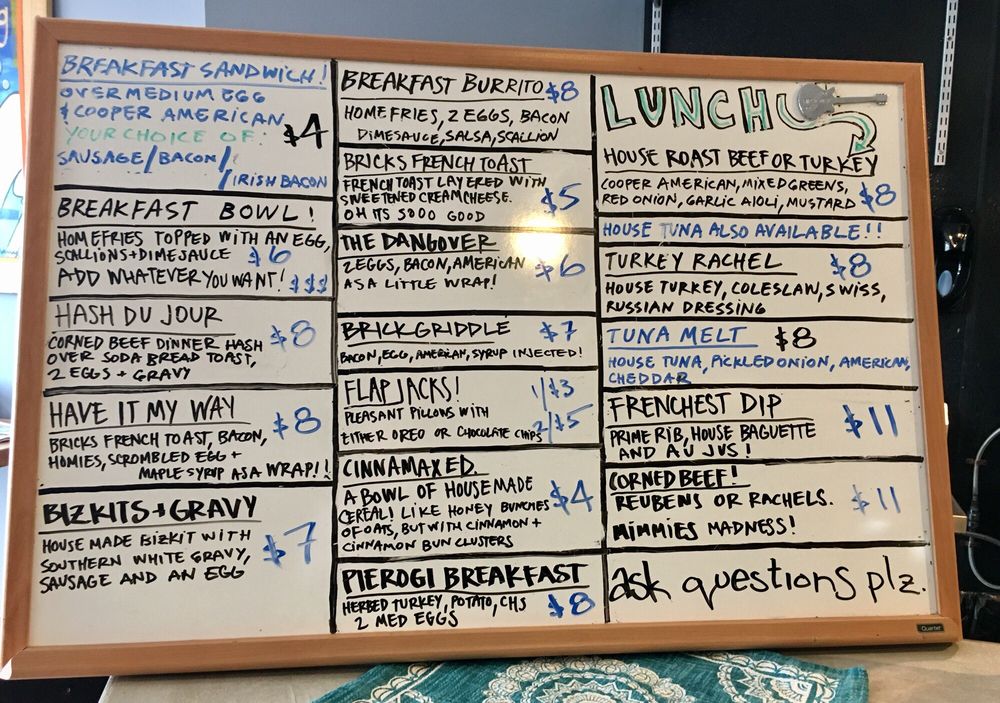 BREAKFAST SANDWICH!
OVER MEDIUM EGG
& COOPER AMERICAN
YOUR CHOICE OF: $4
SAUSAGE/BACON/
/IRISH BACON
BREAKFAST BOWL!
HOMEFRIES TOPPED WITH AN EGG,
SCALLIONS+DIMESAUCE $6
ADD WHATEVER YOU WANT! $$$
HASH DU JOUR
CORNED BEEF DINNER HASH $8
OVER SODA BREAD TOAST,
2 EGGS + GRAVY
HAVE IT MY WAY $8
BRICKS FRENCH TOAST, BACON,
HOMIES, SCROMBLED EGG +
MAPLE SYRUP AS A WRAP!!
BIZKITS+GRAVY
HOUSE MADE BIZKIT WITH $7
SOUTHERN WHITE GRAVY,
SAUSAGE AND AN EGG
BREAKFAST BURRITO $8
HOMEFRIES, 2 EGGS, BACON
DIMESAUCE, SALSA, SCALLION
BRICKS FRENCH TOAST
FRENCH TOAST LAYERED WITH
SWEETENED CREAMCHEESE. $5
OH ITS SOOO GOOD
THE DANGOVER
2 EGGS, BACON, AMERICAN $6
AS A LITTLE WRAP!
BRICK GRIDDLE $7
BACON, EGG, AMERICAN, SYRUP INJECTED!
FLAPJACKS! 1/$3
PLEASANT PILLOWS WITH
EITHER OREO OR CHOCOLATE CHIPS 2/$5
CINNAMAXED.
A BOWL OF HOUSEMADE
CEREAL! LIKE HONEY BUNCHES $4
OF OATS, BUT WITH CINNAMON +
CINNAMON BUN CLUSTERS
PIEROGI BREAKFAST
HERBED TURKEY, POTATO, CHS $8
2 MED EGGS
LUNCH
HOUSE ROAST BEEF OR TURKEY
COOPER AMERICAN, MIXED GREENS,
RED ONION, GARLIC AIOLI, MUSTARD $8
HOUSE TUNA ALSO AVAILABLE!!
TURKEY RACHEL $8
HOUSE TURKEY, COLESLAW, SWISS,
RUSSIAN DRESSING
TUNA MELT $8
HOUSE TUNA, PICKLED ONION, AMERICAN,
CHEDDAR
FRENCHEST DIP
PRIME RIB, HOUSE BAGUETTE $11
AND AU JUS!
CORNED BEEF!
REUBENS OR RACHELS. $11
MIMMIES MADNESS!
ask questions plz.
Quartet